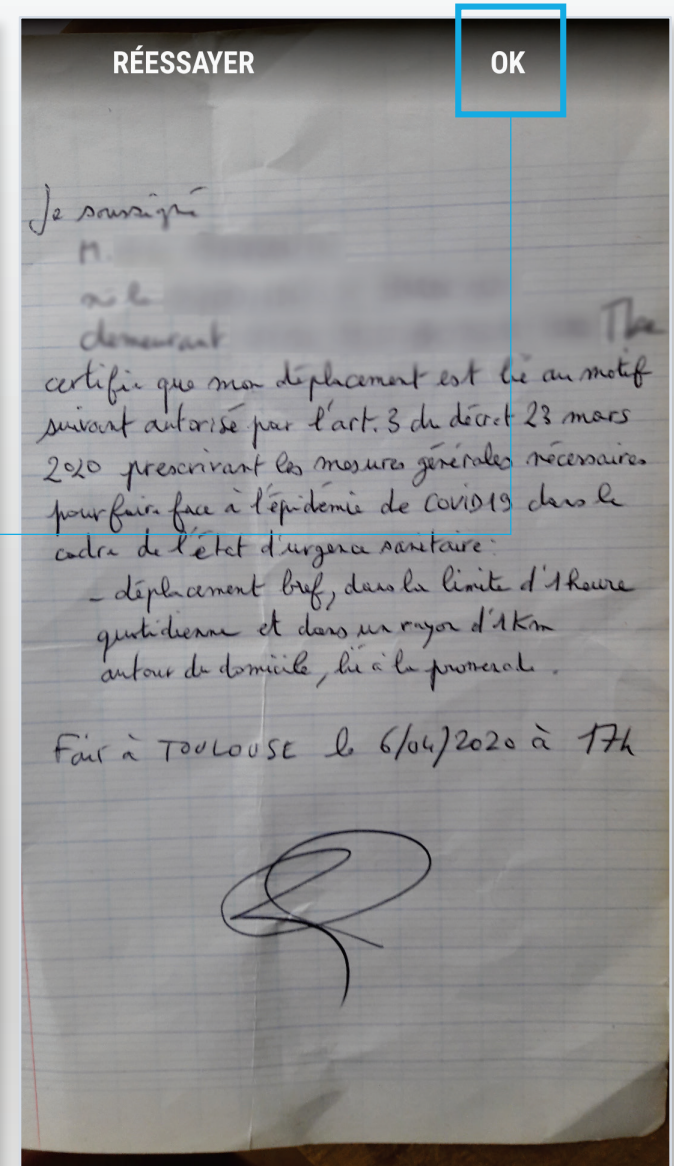 RÉESSAYER OK
Je soussigné
M.
né le
demeurant
certifie que mon déplacement est lié au motif
suivant autorisé par l'art. 3 du décret 23 mars
2020 prescrivant les mesures générales nécessaires
pour faire face à l'épidémie de COVID19 dans le
cadre de l'état d'urgence sanitaire:
- déplacement bref, dans la limite d'1 heure
quotidienne et dans un rayon d'1 Km
autour du domicile, lié à la promenade.
Fait à TOULOUSE le 6/04/2020 à 17h